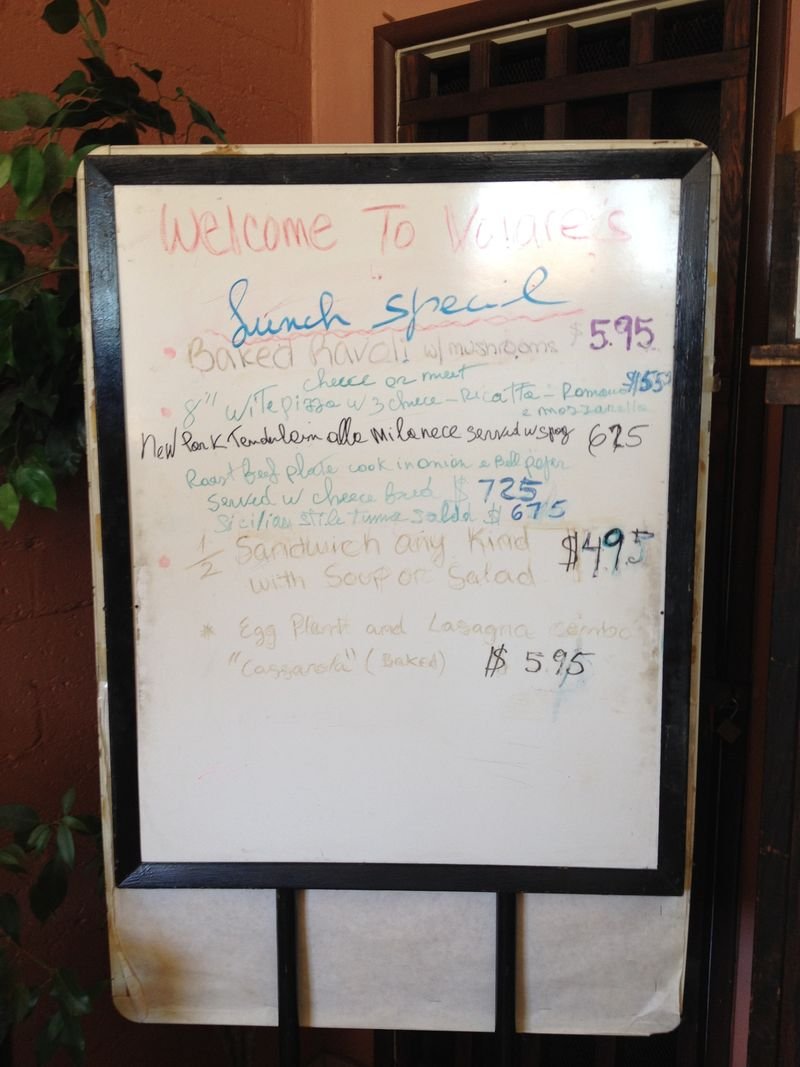 Welcome To Volare's
Lunch special
Baked Ravoli w/ mushrooms $5.95
cheece or meet
8" Wite pizza w 3 cheece - Ricatta - Romano $1559
e mozzarella
New Pork Tenduloim alla Milanece served w spag 675
Roast beef plate cook in onion e Bell peper
served w cheece bred $ 725
Sicilian stile tuna salda $ 675
1/2 Sandwich any Kind $4.95
with Soup or Salad
* Egg Plant and Lasagna combo
"Cassarola" (Baked) $ 5.95